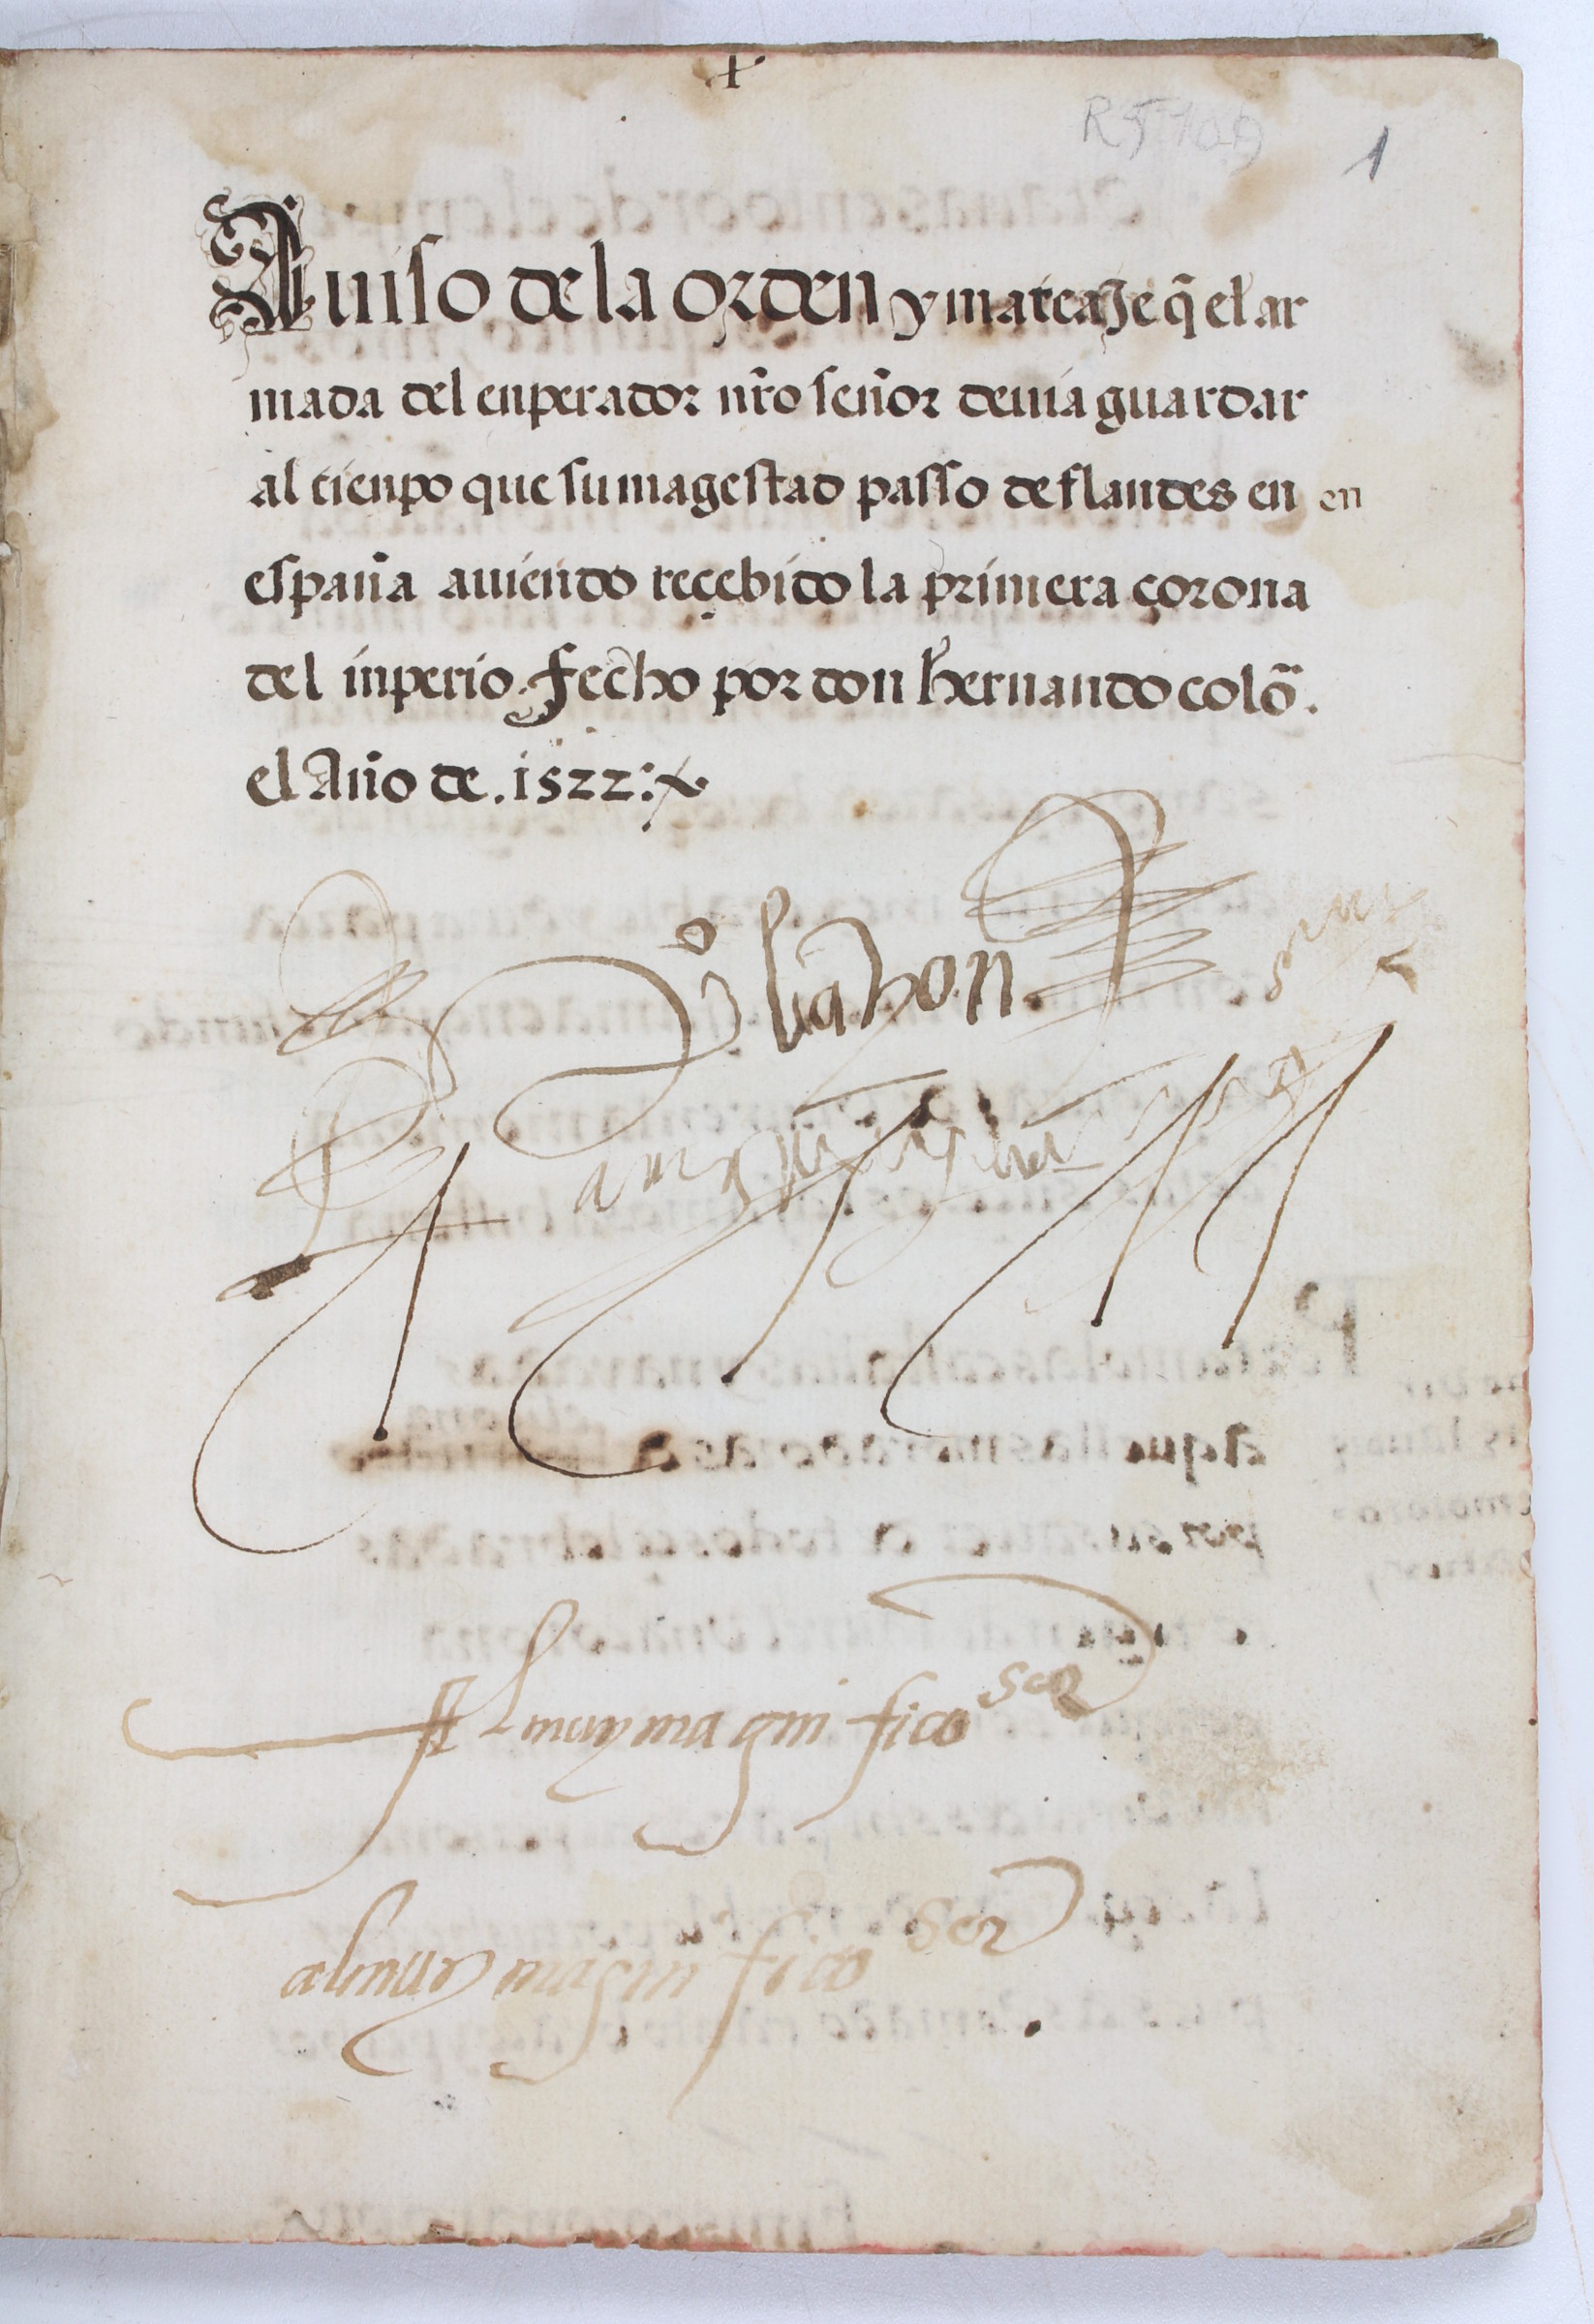 +
1
Auiso de la orden y mareaJe q̃ el ar
mada del enperador nr̃o señor deuia guardar
al tienpo que su magestad passo de flandes en en
españa auiendo reçebido la primera çorona
del inperio. Fecho por don hernando colõ.
el Año de .1522:
Al muy magnifico Señor
al muy magnifico Señor